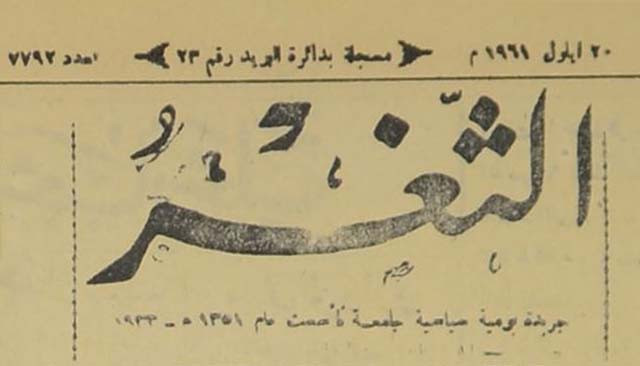 ٢٠ ايلول ١٩٦١ م مسجلة بدائرة البريد رقم ٢٣ العدد ٧٧٩٢
الثَّغْرُ
جريدة يومية سياسية جامعة تأسست عام ١٣٥١ هـ - ١٩٣٣